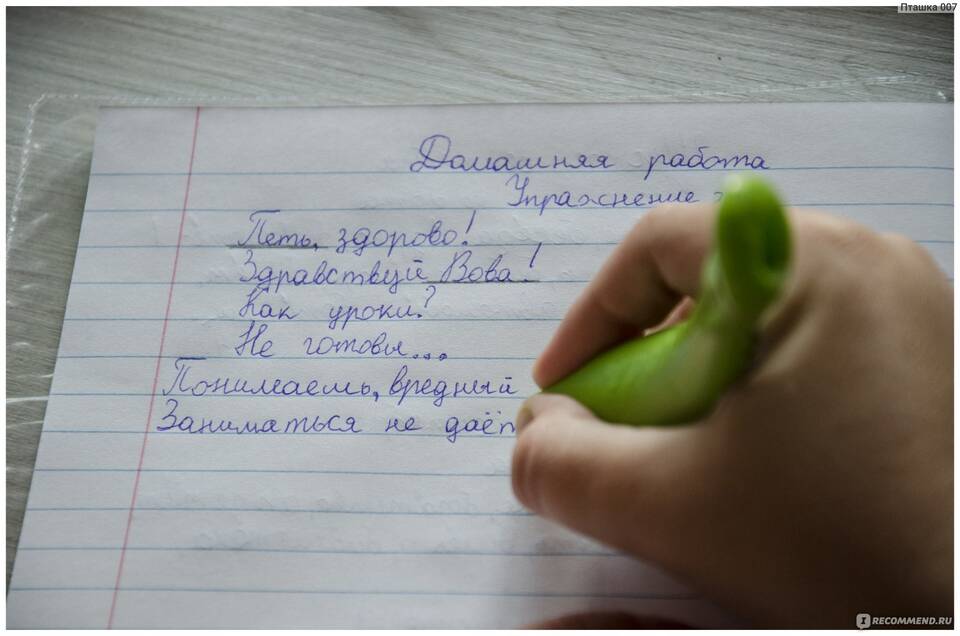 Пташка 007
Домашняя работа
Упражнение
Петь, здорово!
Здравствуй Вова!
Как уроки?
Не готовы...
Понимаешь, вредный
Заниматься не даёт
IRECOMMEND.RU